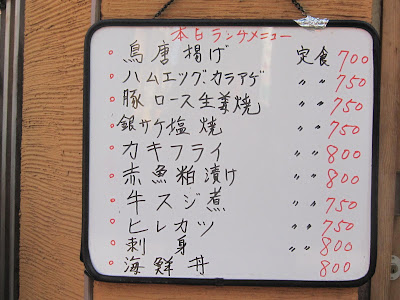 本日ランチメニュー
鳥唐揚げ 定食 700
ハムエッグ、カラアゲ 〃 〃 750
豚ロース生姜焼 〃 〃 750
銀サケ塩焼 〃 〃 750
カキフライ 〃 〃 800
赤魚粕漬け 〃 〃 800
牛スジ煮 〃 〃 750
ヒレカツ 〃 〃 750
刺身 〃 〃 800
海鮮丼 800